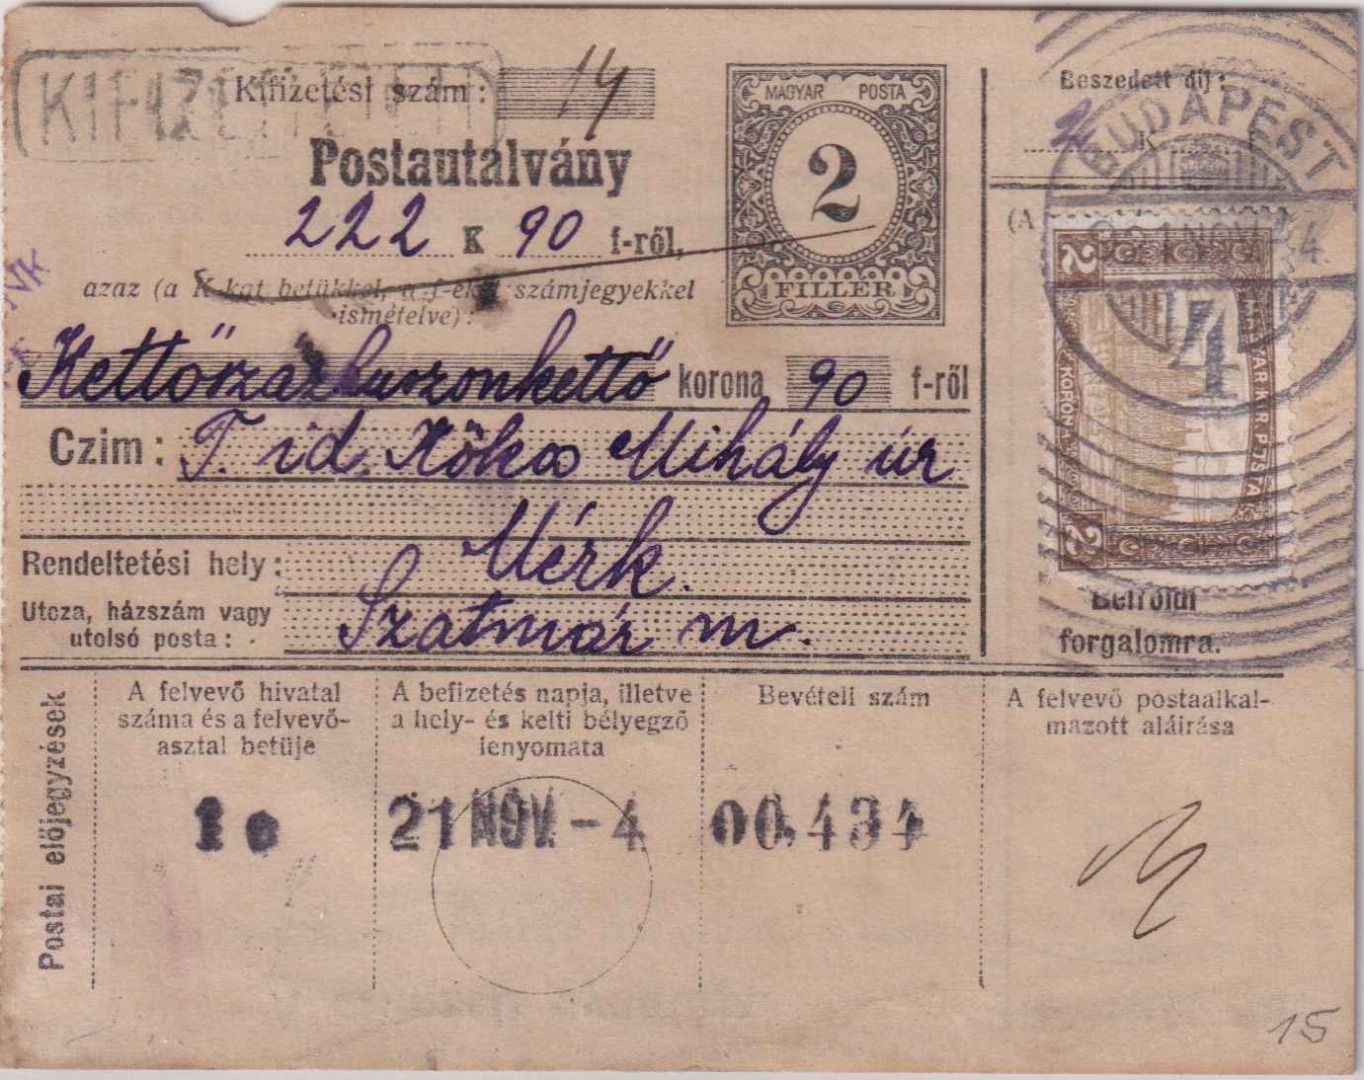 KIFIZETETT
Kifizetési szám: 14
Postautalvány
222 K 90 f-ről,
azaz (a K-kat betűkkel, a f-eket számjegyekkel
ismételve):
Kettőszázhuszonkettő korona 90 f-ről
MAGYAR POSTA
2
FILLÉR
Beszedett díj:
2 K f
(A
BUDAPEST
921 NOV -4
4
2
2
KORONA
MAGYAR KIR. POSTA
Czim: T. id. Kóka Mihály úr
Rendeltetési hely: Mérk.
Utcza, házszám vagy
utolsó posta: Szatmár m.
Belföldi
forgalomra.
Postai előjegyzések
A felvevő hivatal
száma és a felvevő-
asztal betűje
A befizetés napja, illetve
a hely- és kelti bélyegző
lenyomata
Bevételi szám
A felvevő postaalkal-
mazott aláírása
21 NOV -4
00,434
15